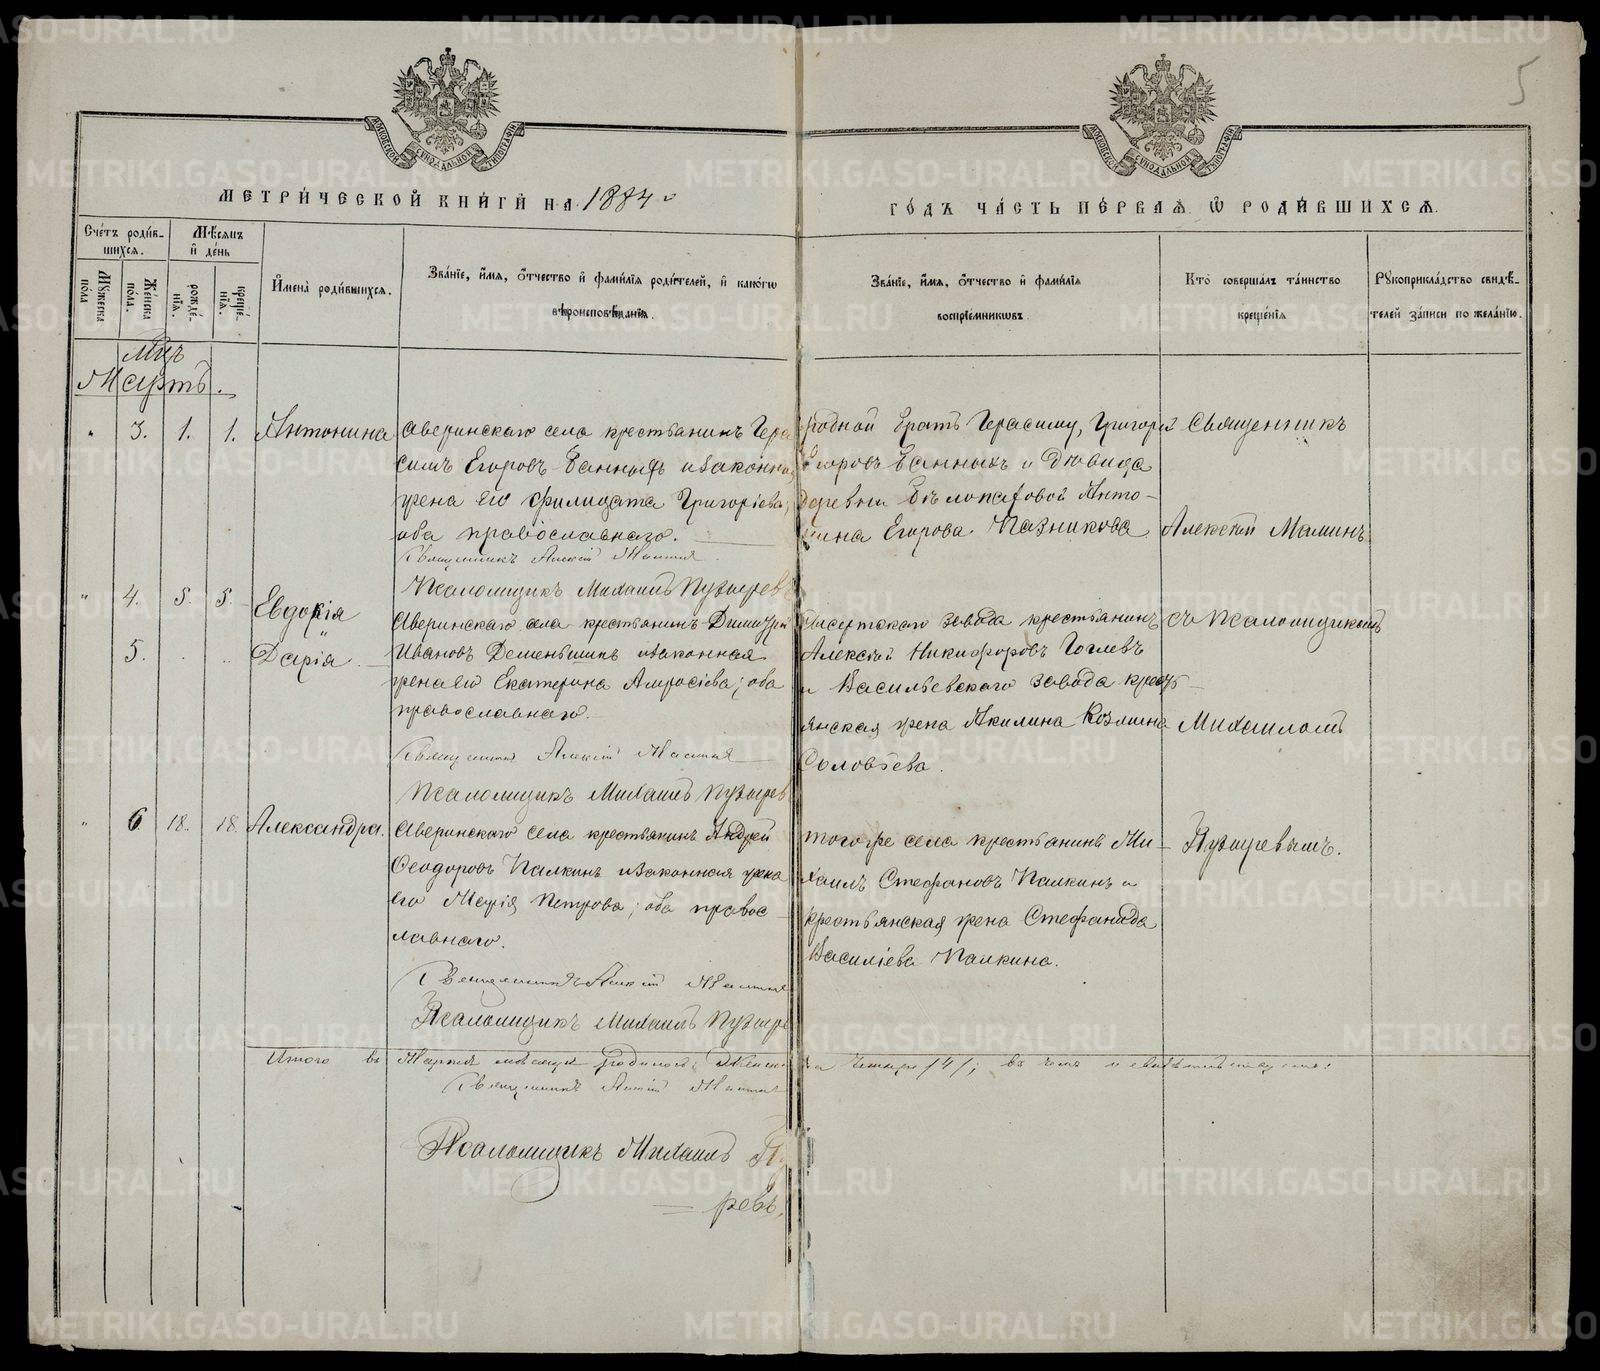 5
МЕТРИ́ЧЕСКОЙ КНИ́ГИ НА 1884
ГО́ДЪ ЧА́СТЬ ПЕ́РВАЯ, Ѡ РОДИ́ВШИХСЯ.
Сче́тъ роди́в-
шихся.
Мѣ́сяцъ
и де́нь
Му́жеска по́ла
Же́нска по́ла.
рожде́-
нїя.
креще́-
нїя.
И̓мена̀ роди́вшихся.
Зва́нїе, и́мя, ѻ́тчество и фами́лїя роди́телей, и како́гѡ
вѣроисповѣ́данїя.
Зва́нїе, и́мя, ѻ́тчество и фами́лїя
воспрїе́мниковъ.
Кто̀ соверша́лъ та́инство
креще́нїя
Рукоприкла́дство свидѣ́-
телей за́писи по жела́нїю.
Мцъ
Мартъ.
" 3. 1. 1. Антонина
Аверинскаго села крестьянинъ Гера
симъ Егоровъ Банныхъ и законная
жена его Филицата Григорiева;
оба православнаго.
Священникъ Алексiй Маминъ
Псаломщикъ Михаилъ Пузырев
родной братъ Герасиму, Григорiй
Егоровъ Банныхъ и дѣвица
деревни Бѣлопаховой Анто-
нина Егорова Пазникова
Священникъ
Алексiй Маминъ
" 4. 5. 5. Евдокiя
5. Дарiя
Аверинскаго села крестьянинъ Димитрiй
Ивановъ Деменьшинъ и законная
жена его Екатерина Амросiева; оба
православнаго.
Священникъ Алексiй Маминъ
Псаломщикъ Михаилъ Пузырев
Сысертскаго завода крестьянинъ
Алексiй Никифоровъ Гоглевъ
и Васильевскаго завода кресть-
янская жена Акилина Козмина
Соловьева.
съ Псаломщикомъ
Михаиломъ
" 6 18. 18. Александра.
Аверинскаго села крестьянинъ Андрей
Ѳеодоровъ Палкинъ и законная жена
его Марiя Петрова; оба правос
лавнаго.
Священникъ Алексiй Маминъ
Псаломщикъ Михаилъ Пузыре
тогоже села крестьянинъ Ми-
хаилъ Стефановъ Палкинъ и
крестьянская жена Стефанида
Василiева Палкина.
Пузыревымъ.
Итого въ Мартѣ мѣсяцѣ родилось: женска четыре /4/; въ чемъ и свидѣтельствуемъ:
Священникъ Алексiй Маминъ
Псаломщикъ Михаилъ Пу
ревъ.
METRIKI.GASO-URAL.RU